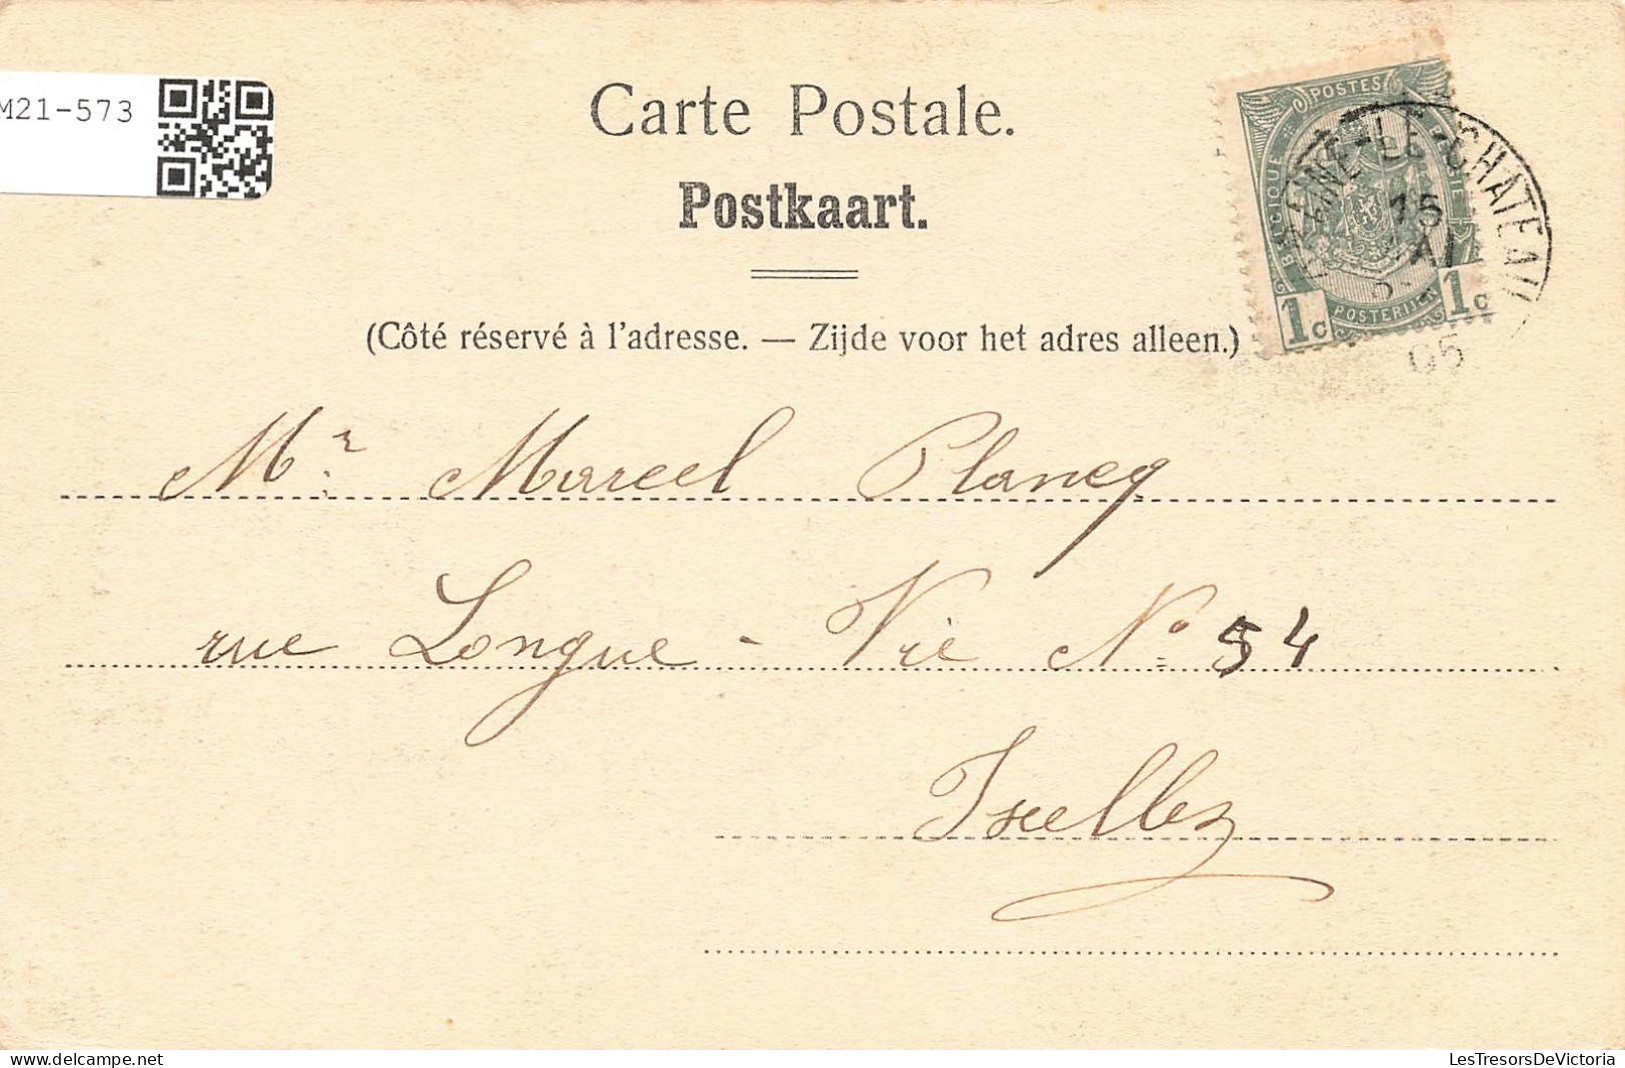 M21-573
Carte Postale.
Postkaart.
(Côté réservé à l'adresse. — Zijde voor het adres alleen.)
POSTES
BELGIQUE
POSTERIJEN
1c 1c
BRAINE-LE-CHATEAU
15
MAI
05
Mr. Marcel Plancq
rue Longue - Vie No 54
Ixelles
LesTresorsDeVictoria.com